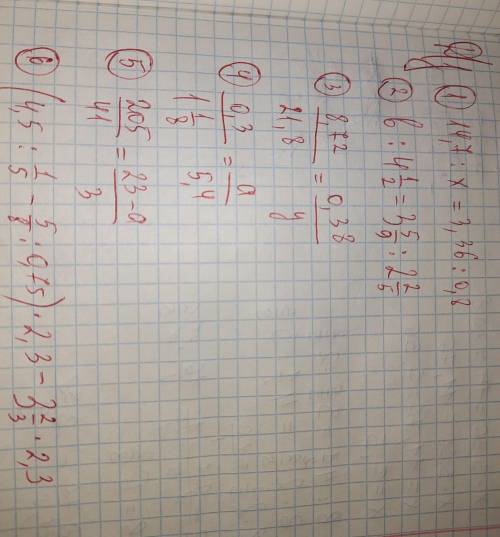 ① 14,7 : x = 3,36 : 0,8
② b : 4 1/2 = 3 5/9 : 2 2/5
③ 8,72/21,8 = 0,38/y
④ 0,3/1 1/8 = a/5,4
⑤ 205/41 = 23-a/3
⑥ (4,5 : 1/5 - 5/8 : 0,75) · 2,3 - 3 2/3 · 2,3